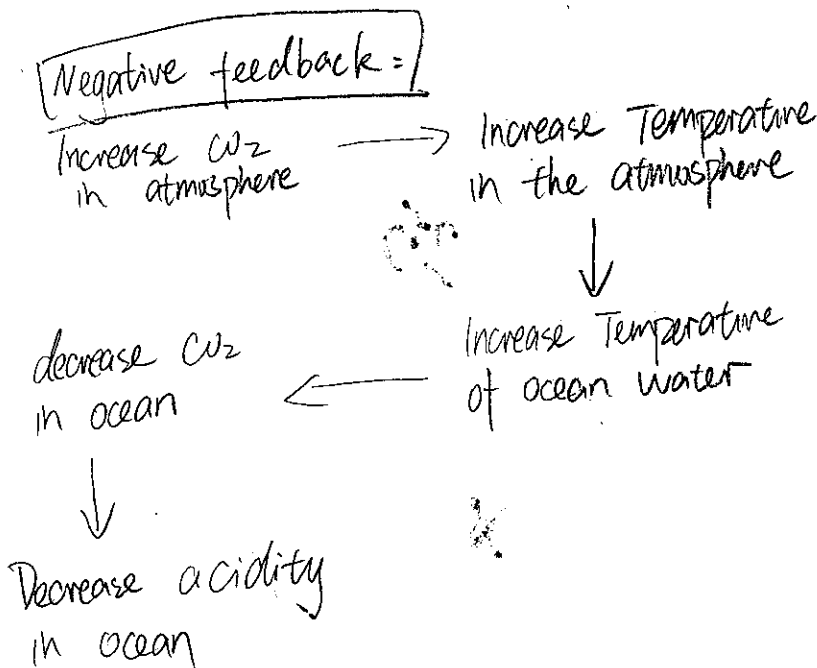 Negative feedback:
Increase CO2
in atmosphere
Increase Temperature
in the atmosphere
Increase Temperature
of ocean water
decrease CO2
in ocean
Decrease acidity
in ocean